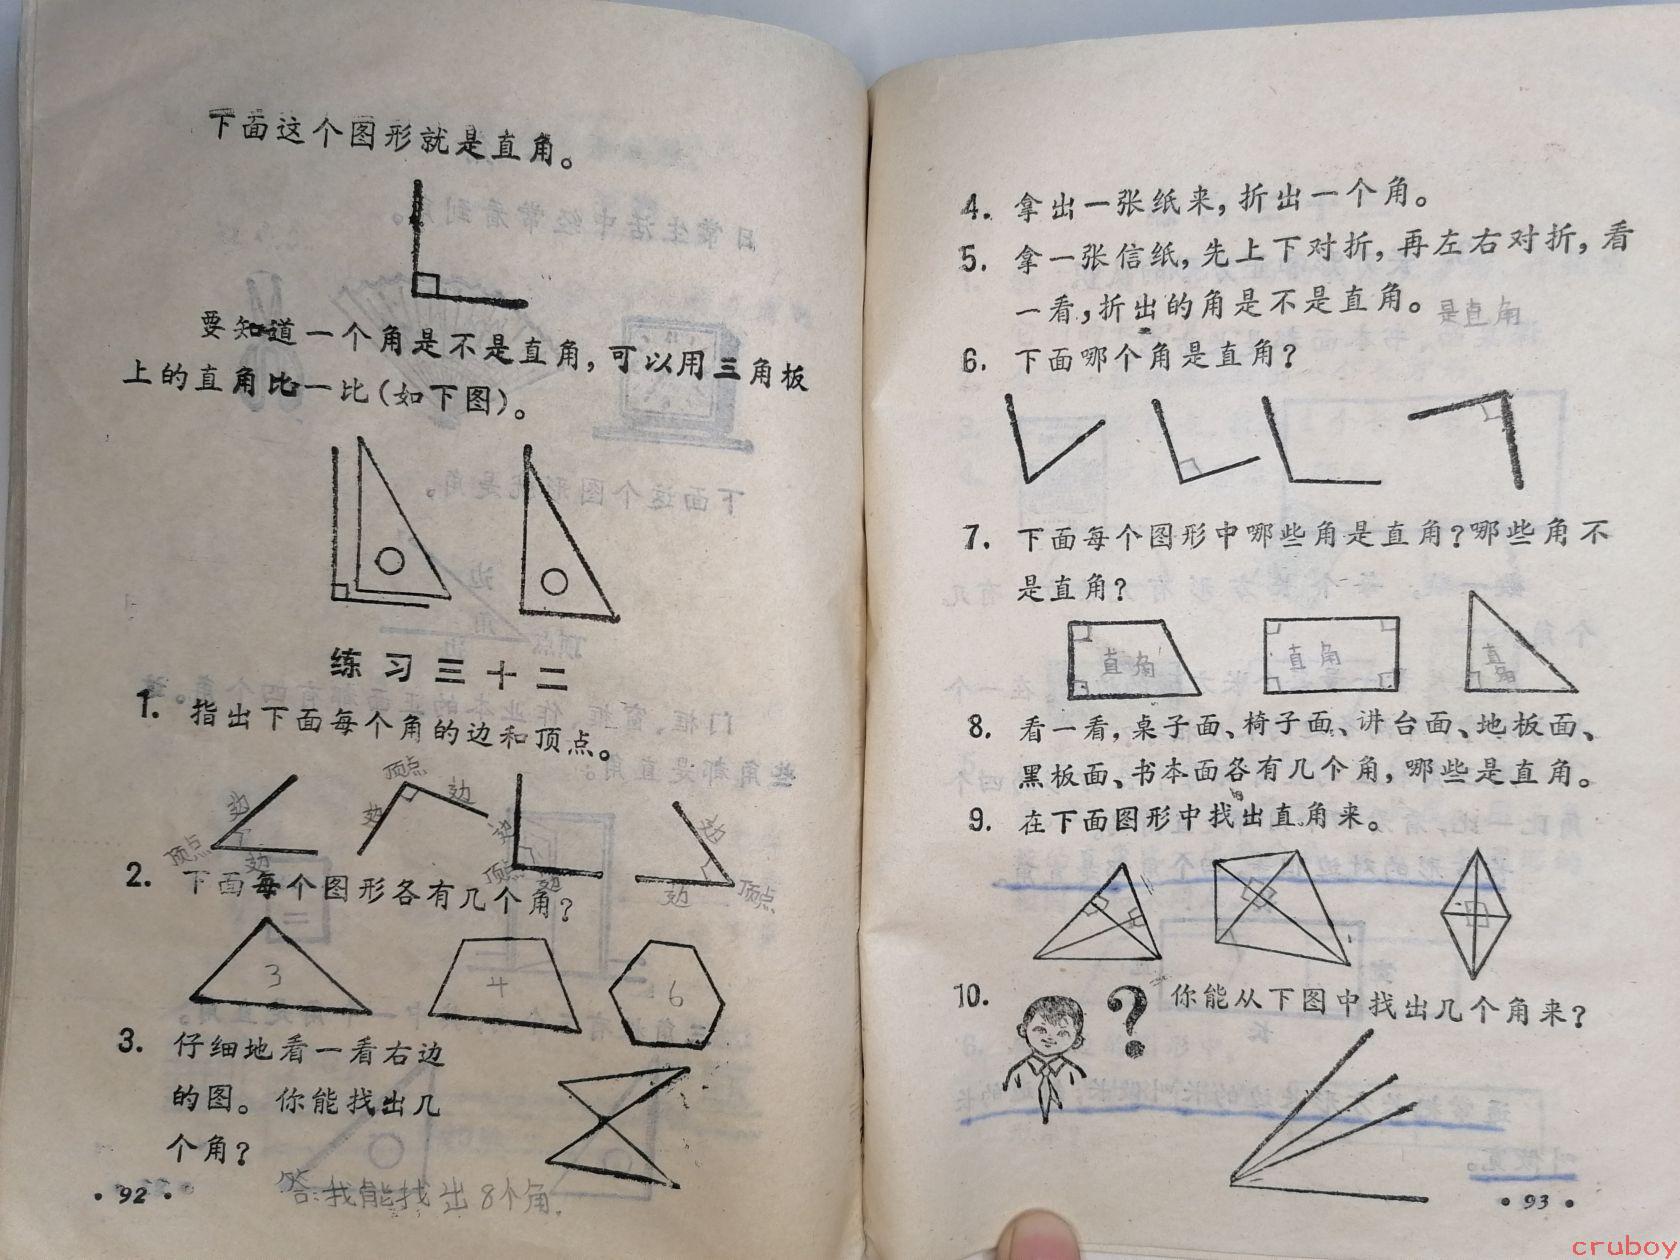 下面这个图形就是直角。
要知道一个角是不是直角,可以用三角板
上的直角比一比(如下图)。
练习三十二
1. 指出下面每个角的边和顶点。
顶点 边 边
边 顶点 边
边 顶点 边
边 边 顶点
2. 下面每个图形各有几个角?
3 4 6
3. 仔细地看一看右边
的图。你能找出几
个角?
答:我能找出8个角.
• 92 •
4. 拿出一张纸来,折出一个角。
5. 拿一张信纸,先上下对折,再左右对折,看
一看,折出的角是不是直角。是直角
6. 下面哪个角是直角?
7. 下面每个图形中哪些角是直角?哪些角不
是直角?
直角 直角 直角
8. 看一看,桌子面、椅子面、讲台面、地板面、
黑板面、书本面各有几个角,哪些是直角。
9. 在下面图形中找出直角来。
10. ? 你能从下图中找出几个角来?
• 93 •
cruboy